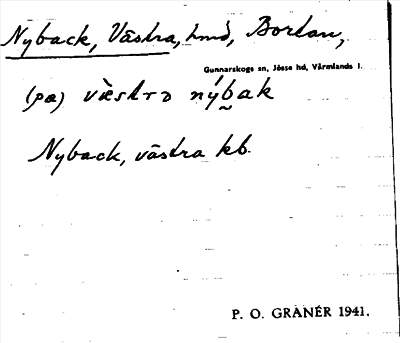 Nyback, Västra, hmd, Bortan,
Gunnarskogs sn, Jösse hd, Värmlands l.
(pa) væstrɔ nýbak
Nyback, västra kb.
P. O. GRANÉR 1941.